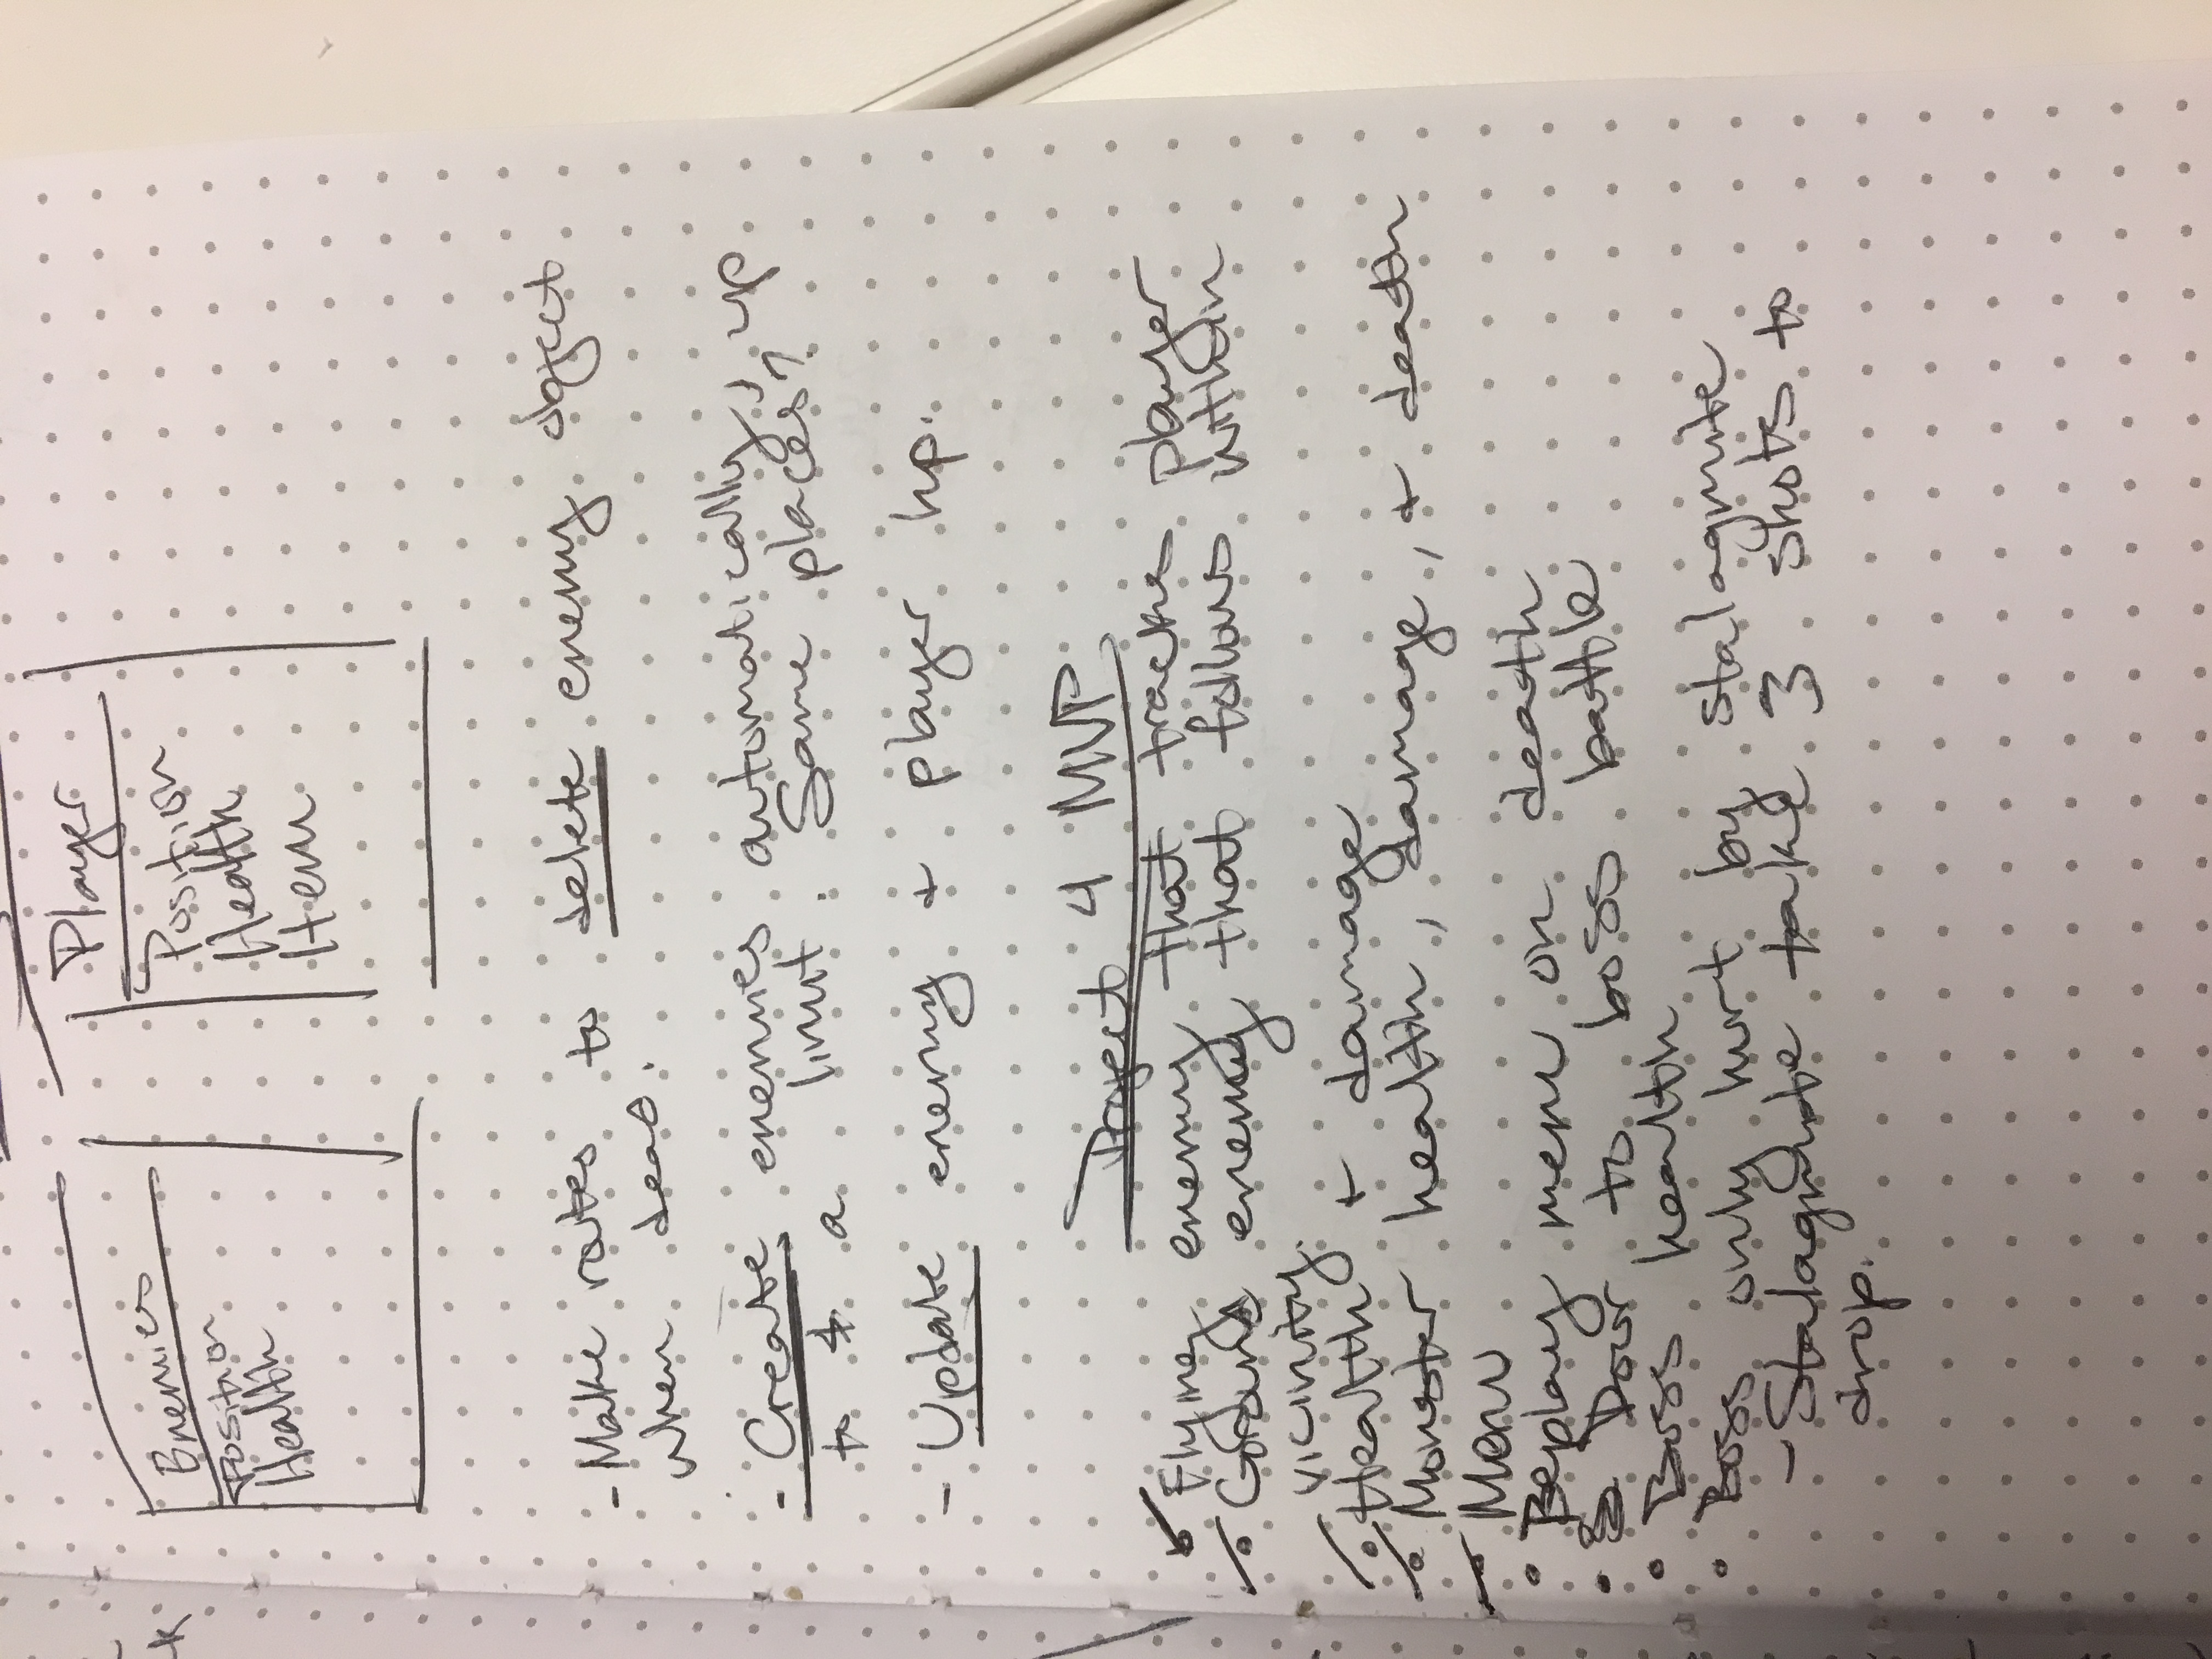 Enemies
Position
Health
Player
Position
Health
Item
- Make routes to delete enemy object
when dead.
- Create enemies automatically, up
to a limit. Same places?
- Update enemy + player hp.
Project 4 MVP
Flying enemy that tracks player
• Ground enemy that follows within
vicinity.
• Health + damage
• Monster health, damage, + death
• Menu
• Replay menu on death
• Door to boss battle
• Boss health
• Boss only hurt by stalagmite
- Stalagmite take 3 shots to
drop.